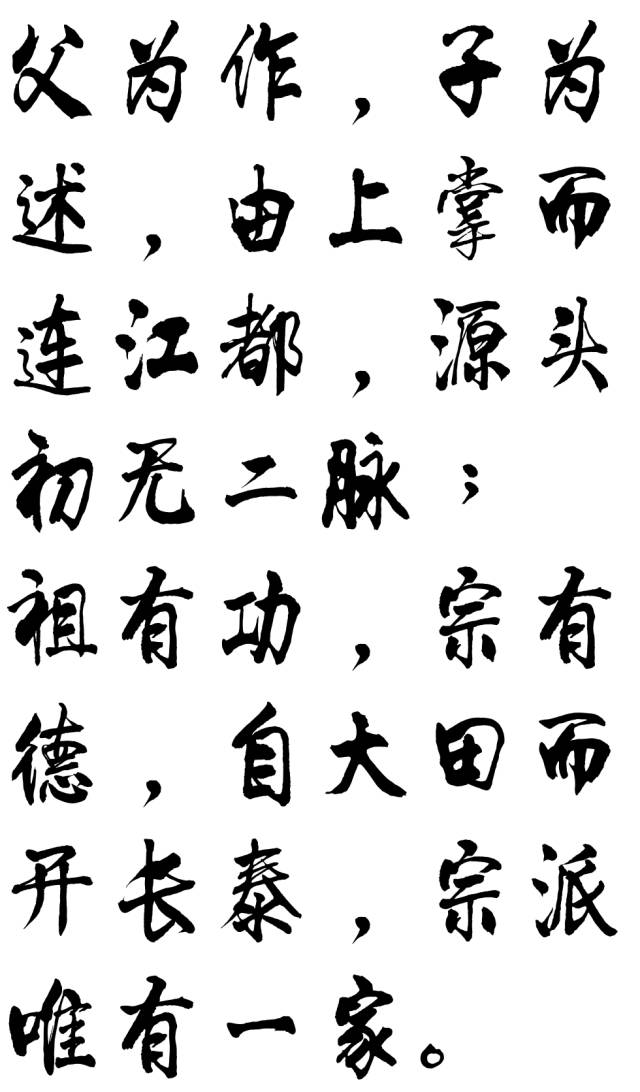 父为作，子为
述，由上掌而
连江都，源头
初无二脉；
祖有功，宗有
德，自大田而
开长泰，宗派
唯有一家。